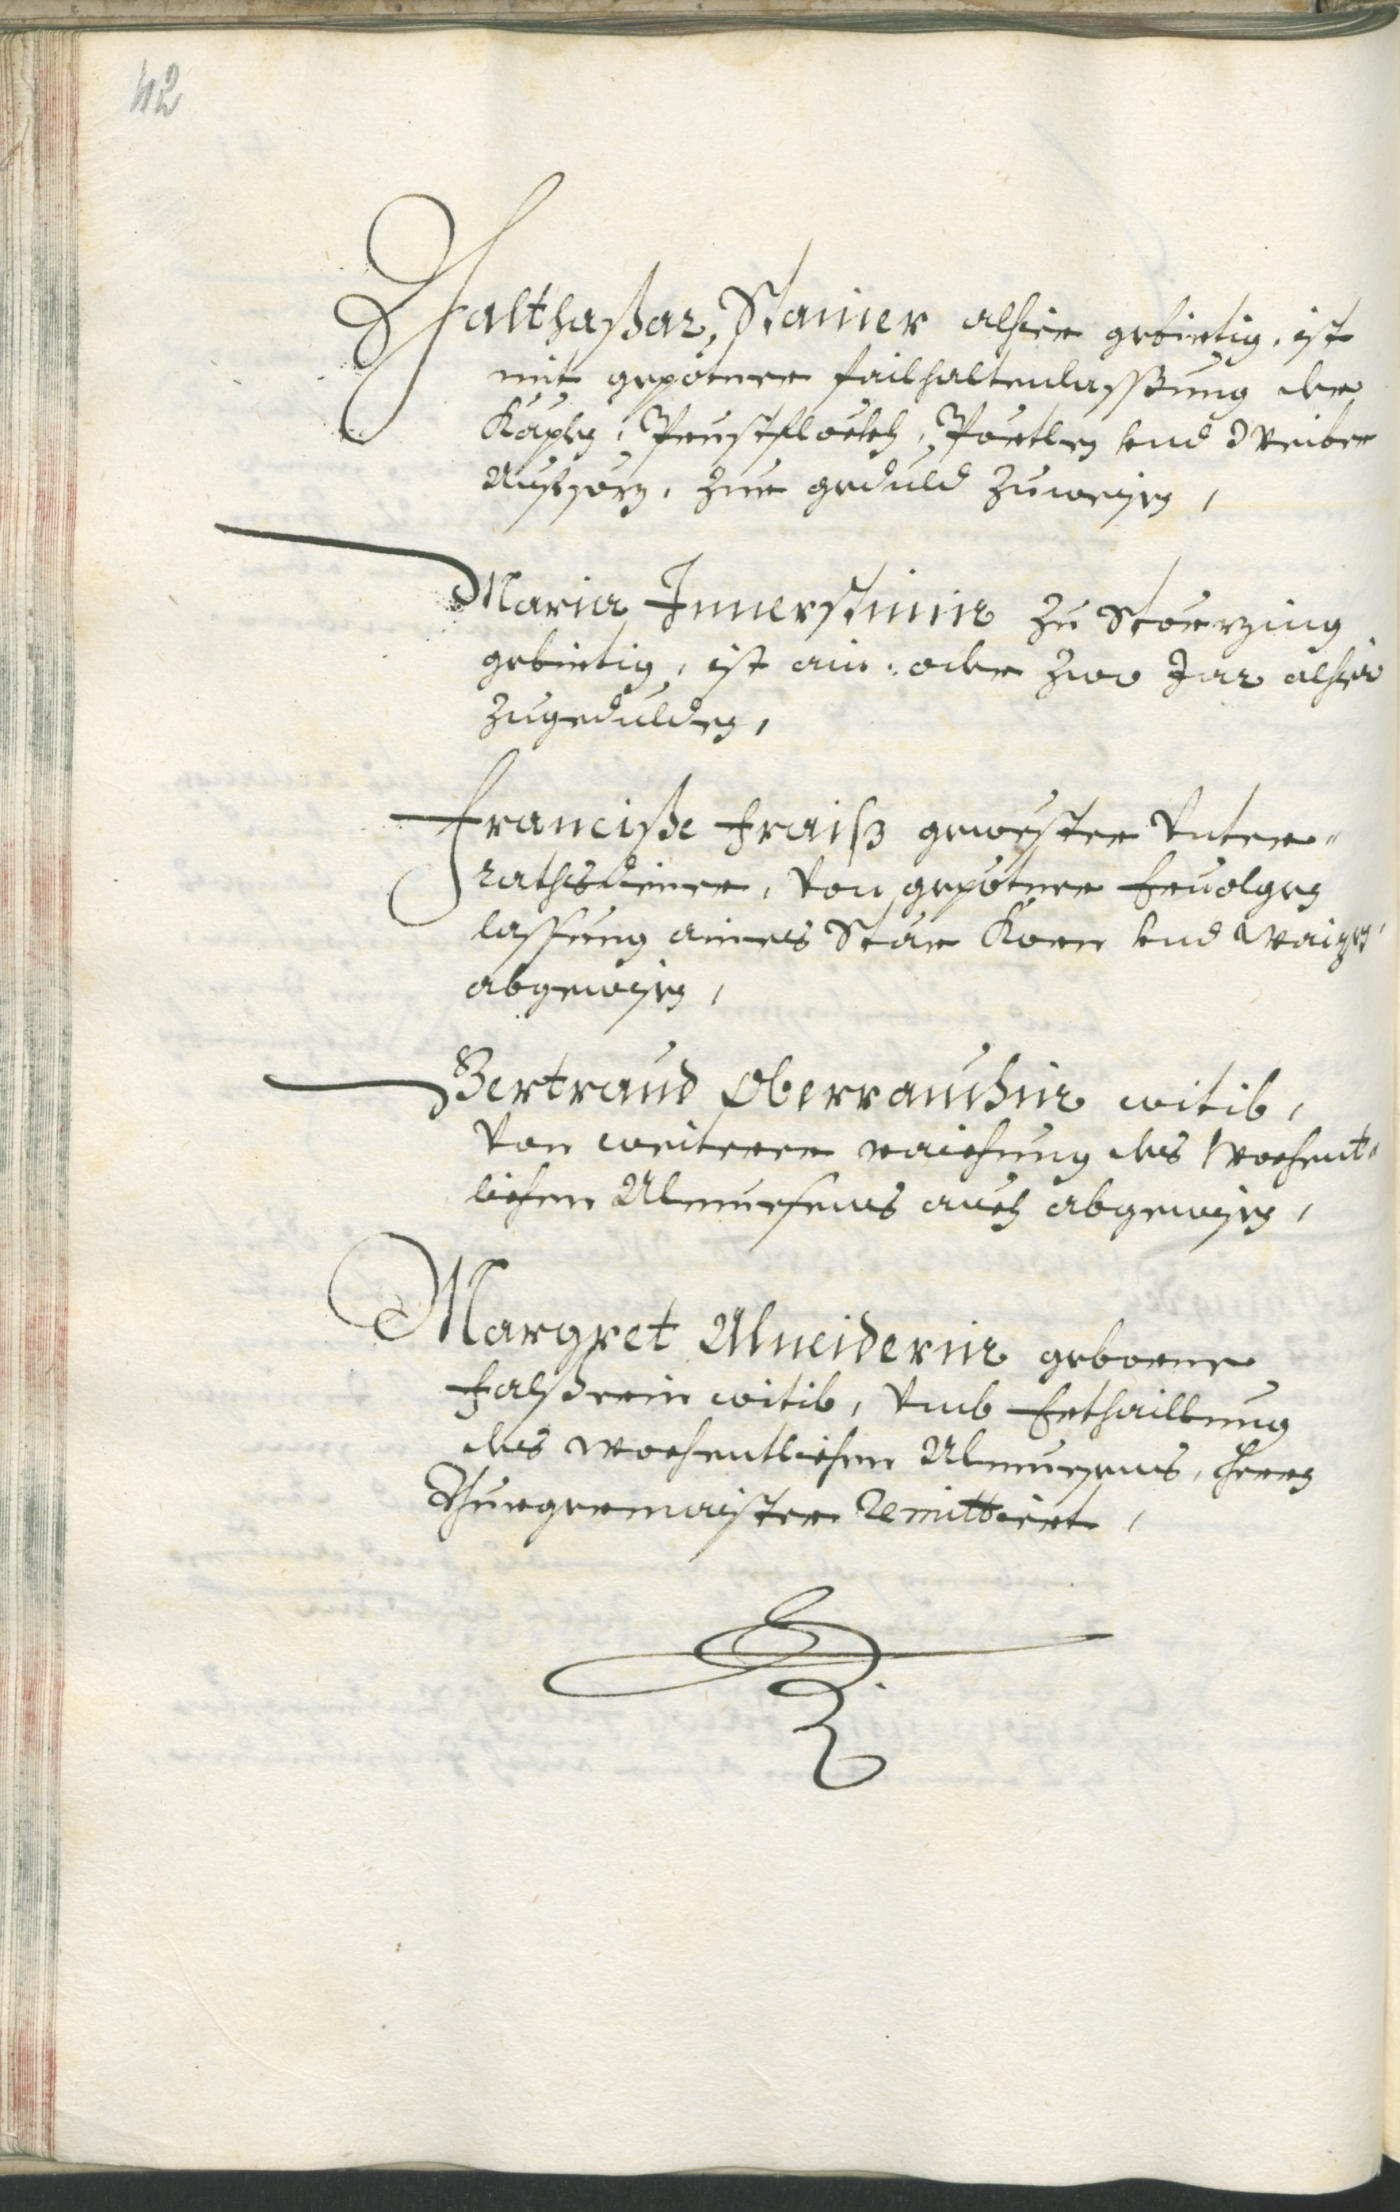 42
Balthaßar Stainer alhier gebirtig, ist
mit gepötner failhaltenlassung der
Käpls, Prustfleckh, Pörtlen vnd Weiber
Aufsöz, zur geduld zuweisen,
Maria Innerstinin zu Störzing
gebirtig, ist ain: oder zwo Jar alhie
zugedulden,
Franciße Fraiß gewester Unter-
rathsdiener, von gepötner Ervolgen
lassung aines Stär Korn vnd Waizen
abgewisen,
Gertraud Oberrauchin witib,
von weiterer raichung des Wochent-
lichen Almuesens auch abgewisen,
Margret Alneiderin geborne
Falserin witib, vmb Erthaillung
des wochentlichen Almuesens, Herrn
Burgermaister Remittiert,